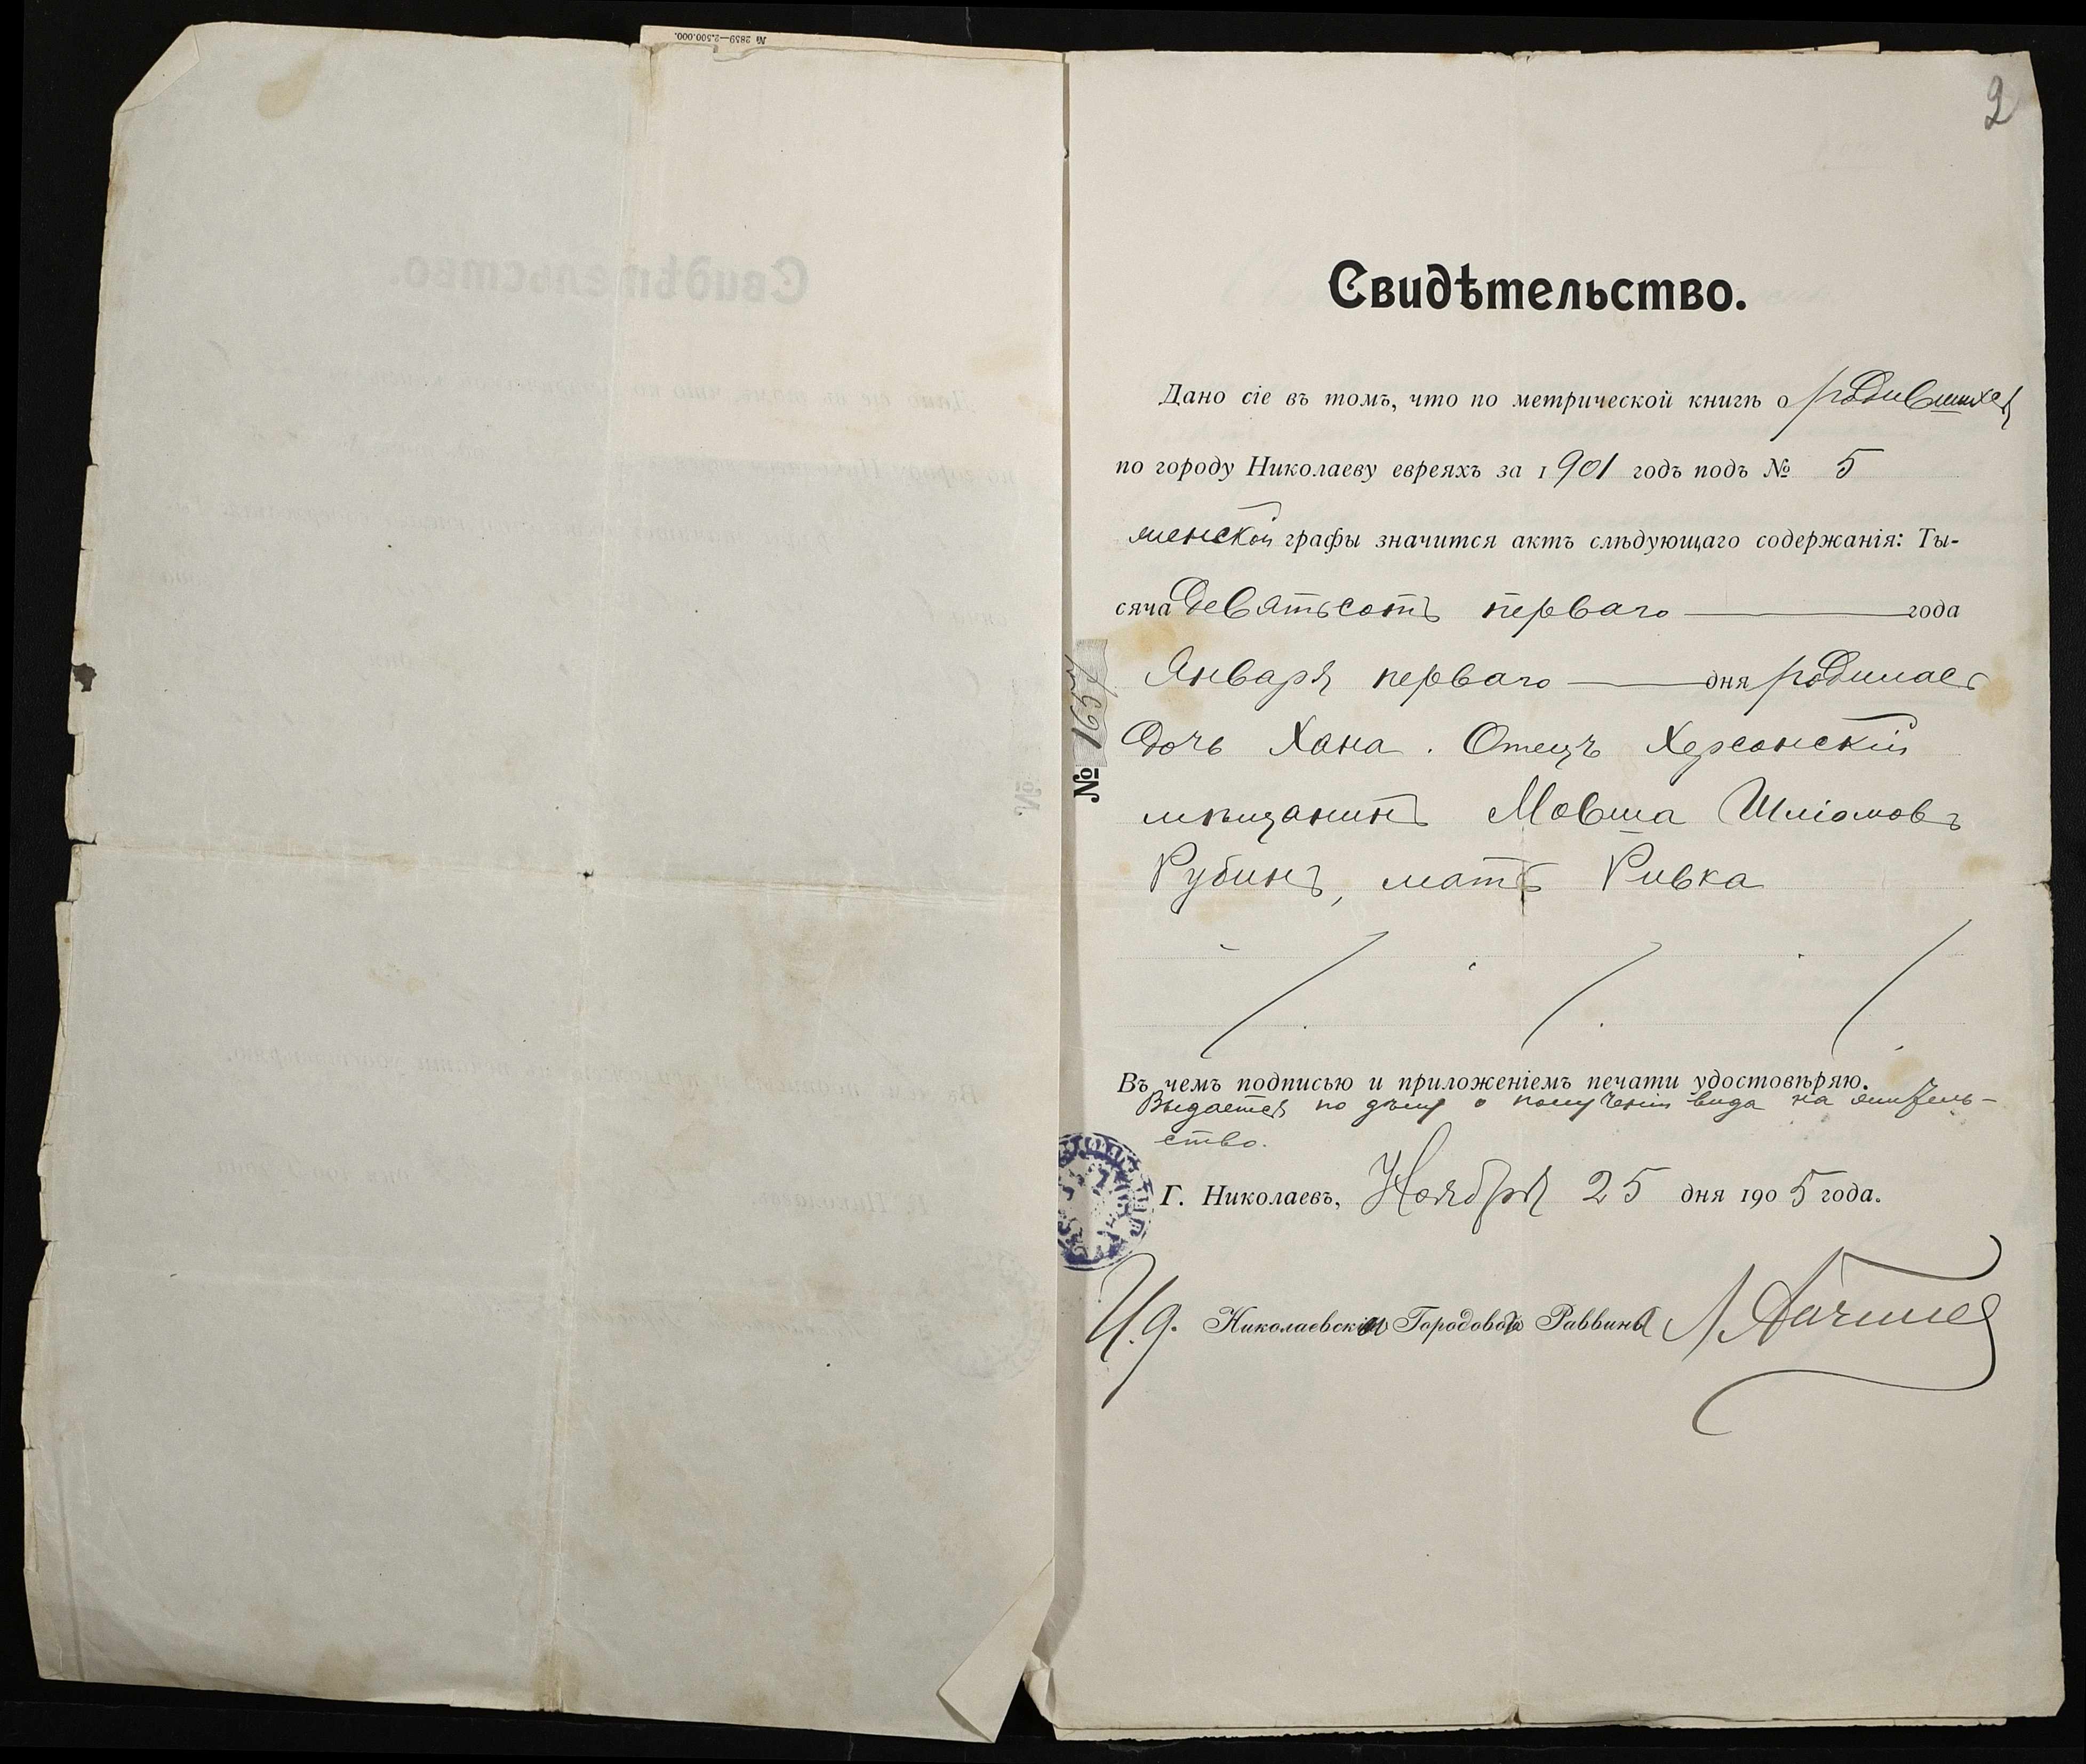 № 2859—2.500.000.
2
Свидѣтельство.
Дано сіе въ томъ, что по метрической книгѣ о родившихся
по городу Николаеву евреяхъ за 1901 годъ подъ № 5
женской графы значится актъ слѣдующаго содержанія: Ты-
сяча девятьсотъ перваго года
Января перваго дня родилась
дочь Хана. Отецъ Херсонскій
мѣщанинъ Мовша Шліомовъ
Рубинъ, мать Ривка
№ 1697
Въ чемъ подписью и приложеніемъ печати удостовѣряю.
Выдается по дѣлу о полученіи вида на житель-
ство.
Г. Николаевъ, Ноября 25 дня 1905 года.
И.д. Николаевскаго Городового Раввина